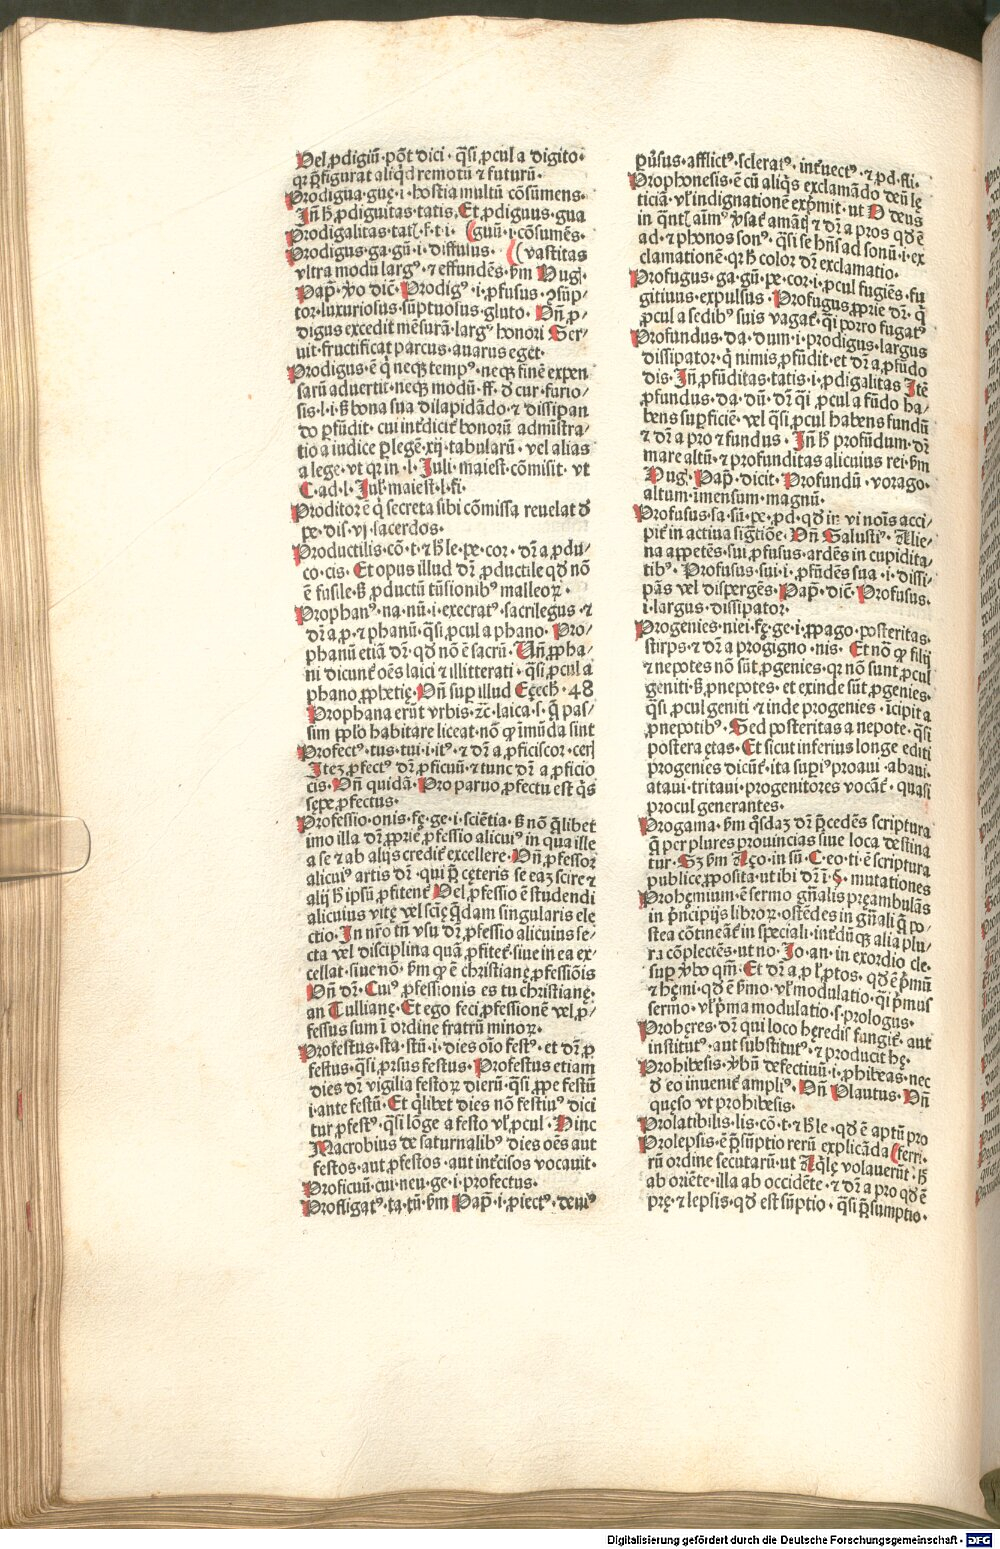 Vel ꝓdigiũ·põt dici· q̃si ꝓcul a digito·
qꝛ p̃figurat aliqͥd remotũ ⁊ futurũ·
Prodigua·guę·i·hostia multũ cõsũmens·
Jñ hͨ ꝓdiguitas·tatis, Et ꝓdiguus·gua
Prodigalitas·tatis·f·t·i· (guũ·i·cõsumẽs·
Prodigus·ga·gũ·i·diffusus· ((vastitas
vltra modũ largꝰ·⁊ effundẽs·ẜm Hug·
Pap̃·ỽo dic̃·Prodigꝰ·i·ꝓfusus·ꝯsũp⸗
tor·luxuriosus·sũptuosus·gluto· Vñ ꝓ⸗
digus excedit mẽsurã·largꝰ honori Ser⸗
uit·fructificat parcus·auarus eget·
Prodigus·ẽ qͥ neqꝫ tempꝰ·neqꝫ finẽ expen
sarũ aduertit·neqꝫ modũ·ff·ð cur·furio⸗
sis·l·i·ꝫ bona sua dilapidãdo·⁊ dissipan
do ꝓfũdit· cui int̃dicit̃ bonorũ admĩstra⸗
tio a iudice ꝑ legẽ·xij·tabularũ· vel alias
a lege·vt qꝛ in·l·Juli·maiest·cõmisit·vt
C·ad·l·Jul̃·maiest·l·fi·
Proditor ẽ qͥ secreta sibi cõmissa reuelat ð
pe·dis·vj·sacerdos·
Productilis·cõ·t·⁊ h̃·le·pe·cor· dr̃·a ꝓdu⸗
co·cis· Et opus illud dr̃ ꝓductile qð nõ
ẽ fusile·ꝫ ꝓductũ tũsionibꝰ malleoꝝ·
Prophanꝰ·na·nũ·i·execratꝰ·sacrilegus·⁊
dr̃ a ꝓ·⁊ phanũ·q̃si ꝓcul a phano· Pro⸗
phanũ etiã dr̃· qð nõ ẽ sacrũ· Vñ ꝓpha⸗
ni dicunt̃ oẽs laici ⁊ illitterati· q̃si ꝓcul a
phano ꝓphetię·Vñ suꝑ illud Eçech·48
Prophana erũt vrbis·⁊c·laica·s·q̃ pas⸗
sim pp̃lo habitare liceat·nõ ꝙ ĩmũda sint
Profectꝰ·tus·tui·i·itꝰ·⁊ dr̃ a ꝓficiscor·ceris
Jteꝫ ꝓfectꝰ dr̃ ꝓficuũ·⁊ tunc dr̃ a ꝓficio
cis·Vñ quidã·Pro paruo ꝓfectu est q̃s
sępe ꝓfectus·
Professio·onis·fę·ge·i·sciẽtia·ꝫ nõ q̃libet
imo illa dr̃ ꝓprie ꝓfessio alicuiꝰ in qua ille
a se ⁊ ab alijs credit̃ excellere·Vñ ꝓfessor
alicuiꝰ artis dr̃· qui p̃ cęteris se eaꝫ scire ⁊
alij hͨ ipsũ ꝓfitent̃ Vel ꝓfessio ẽ studendi
alicuius vitę vel sciẽ q̃dam singularis ele
ctio·In nr̃o tñ vsu dr̃ ꝓfessio alicuius se⸗
cta vel disciplina quã ꝓfitet̃·siue in ea ex⸗
cellat·siue nõ· ẜm ꝙ ẽ christianę ꝓfessiõis
Vñ dr̃·Cuiꝰ ꝓfessionis es tu christianę·
an Tullianę·Et ego feci ꝓfessionẽ vel ꝓ⸗
fessus sum ĩ ordine fratrũ minoꝝ·
Profestus·sta·stũ·i·dies oĩo festꝰ· et dr̃ ꝓ
festus·q̃si ꝓrsus festus· Profestus etiam
dies dr̃ vigilia festoꝝ dierũ·q̃si ꝓpe festũ
i·ante festũ·Et q̃libet dies nõ festiuꝰ dici
tur ꝓfestꝰ· q̃si lõge a festo vl̃ ꝓcul·Hinc
Macrobius de saturnalibꝰ dies oẽs aut
festos·aut ꝓfestos·aut int̃cisos vocauit·
Proficuũ·cui·neu·ge·i·profectus·
Profligatꝰ·ta·tũ·ẜm Pap̃·i·ꝓiectꝰ·deuiꝰ
ꝓũsus·afflictꝰ·scleratꝰ·int̃uectꝰ·⁊ ꝓd·fli·
Prophonesis·ẽ cũ aliqͥs exclamãdo deũ lę
ticiã·vl̃ indignationẽ exp̃mit·ut O deus
in qͥnt̃ aĩmꝰ ỽsat̃ amãtis ⁊ dr̃ a pros qð ẽ
ad·⁊ phonos sonꝰ·q̃si se hñs ad sonũ·i·ex
clamationẽ·qꝛ hͨ color dr̃ exclamatio·
Profugus·ga·gũ·pe·cor·i·ꝓcul fugiẽs·fu
gitiuus·expulsus· Profugus ꝓprie dr̃· qͥ
ꝓcul a sedibꝰ suis vagat̃· q̃si porro fugatꝰ
Profundus·da·dum·i·prodigus·largus
dissipator·qͥ nimis ꝓfũdit·et dr̃ a ꝓfũdo
dis·Jñ ꝓfũditas·tatis·i·ꝓdigalitas Jtẽ
ꝓfundus·da·dũ·dr̃ qͥ ꝓcul a fũdo ha⸗
bens suꝑficiẽ· vel q̃si ꝓcul habens fundũ
⁊ dr̃ a pro ⁊ fundus· Jñ hͨ profũdum·dr̃
mare altũ·⁊ profunditas alicuius rei·ẜm
Hug·Pap̃·dicit·Profundũ·vorago·
altum·ĩmensum·magnũ·
Profusus·sa·sũ·pe·ꝓd·qð in vi noĩs acci⸗
pit̃ in actiua sigñtiõe·Vñ Salustiꝰ·Alie⸗
na appetẽs·sui ꝓfusus·ardẽs in cupidita⸗
tibꝰ·Profusus·sui·i·ꝓfũdẽs sua·i·dissi⸗
pãs vel dispergẽs·Pap̃·dic̃·Profusus·
i·largus·dissipator·
Progenies·niei·fę·ge·i·ꝓpago·posteritas·
stirps·⁊ dr̃ a progigno·nis· Et nõ ꝙ filij
⁊ nepotes nõ sũt ꝓgenies·qꝛ nõ sunt ꝓcul
geniti·ꝫ ꝓnepotes·et exinde sũt ꝓgenies·
q̃si ꝓcul geniti ⁊ inde progenies·ĩcipit a
ꝓnepotibꝰ·Sed posteritas a nepote·q̃si
postera ętas·Et sicut inferius longe editi
progenies dicunt̃·ita suꝑiꝰ proaui·abaui·
ataui·tritaui·progenitores vocant̃·quasi
procul generantes·
Progama·ẜm qͥsdaꝫ dr̃ p̃cedẽs scriptura
q̃ per plures prouincias siue loca destina
tur·Sꝫ ẜm Aço·in sũ·C·eo·ti·ẽ scriptura
publice ꝓposita·ut ibi dr̃ ĩ·§·mutationes
Prohęmium·ẽ sermo gñalis pręambulãs
in p̃ncipijs libroꝝ·ostẽdes in gñali q̃ po⸗
stea cõtineãt̃ in speciali·int̃dũ qꝫ alia plu⸗
ra cõplectẽs·ut no·Jo·an·in exordio cle·
suꝑ ỽbo qm̃·Et dr̃ a ꝓ vl̃ ꝓtos·qð ẽ p̃mũ
⁊ hęmi·qð ẽ ẜmo·vl̃ modulatio·q̃si p̃mus
sermo·vl̃ p̃ma modulatio·s·prologus·
Prohęres·dr̃ qui loco hęredis fangit̃·aut
institutꝰ·aut substitutꝰ·⁊ producit hę·
Prohibesis·ỽbũ defectiuũ·i·ꝓhibeas·nec
ð eo inuenit̃ ampliꝰ·Vñ Plautus·Vñ
quęso vt prohibesis·
Prolatibilis·lis·cõ·t·⁊ h̃·le·qð ẽ aptũ pro
Prolepsis·ẽ p̃sũptio rerũ explicãda (ferri·
rũ ordine secutarũ·ut Aqͥlę volauerũt·hͨ
ab oriẽte·illa ab occidẽte·⁊ dr̃ a pro qð ẽ
prę ⁊ lepsis·qð est sũptio·q̃si p̃sumptio·
Digitalisierung gefördert durch die Deutsche Forschungsgemeinschaft - DFG